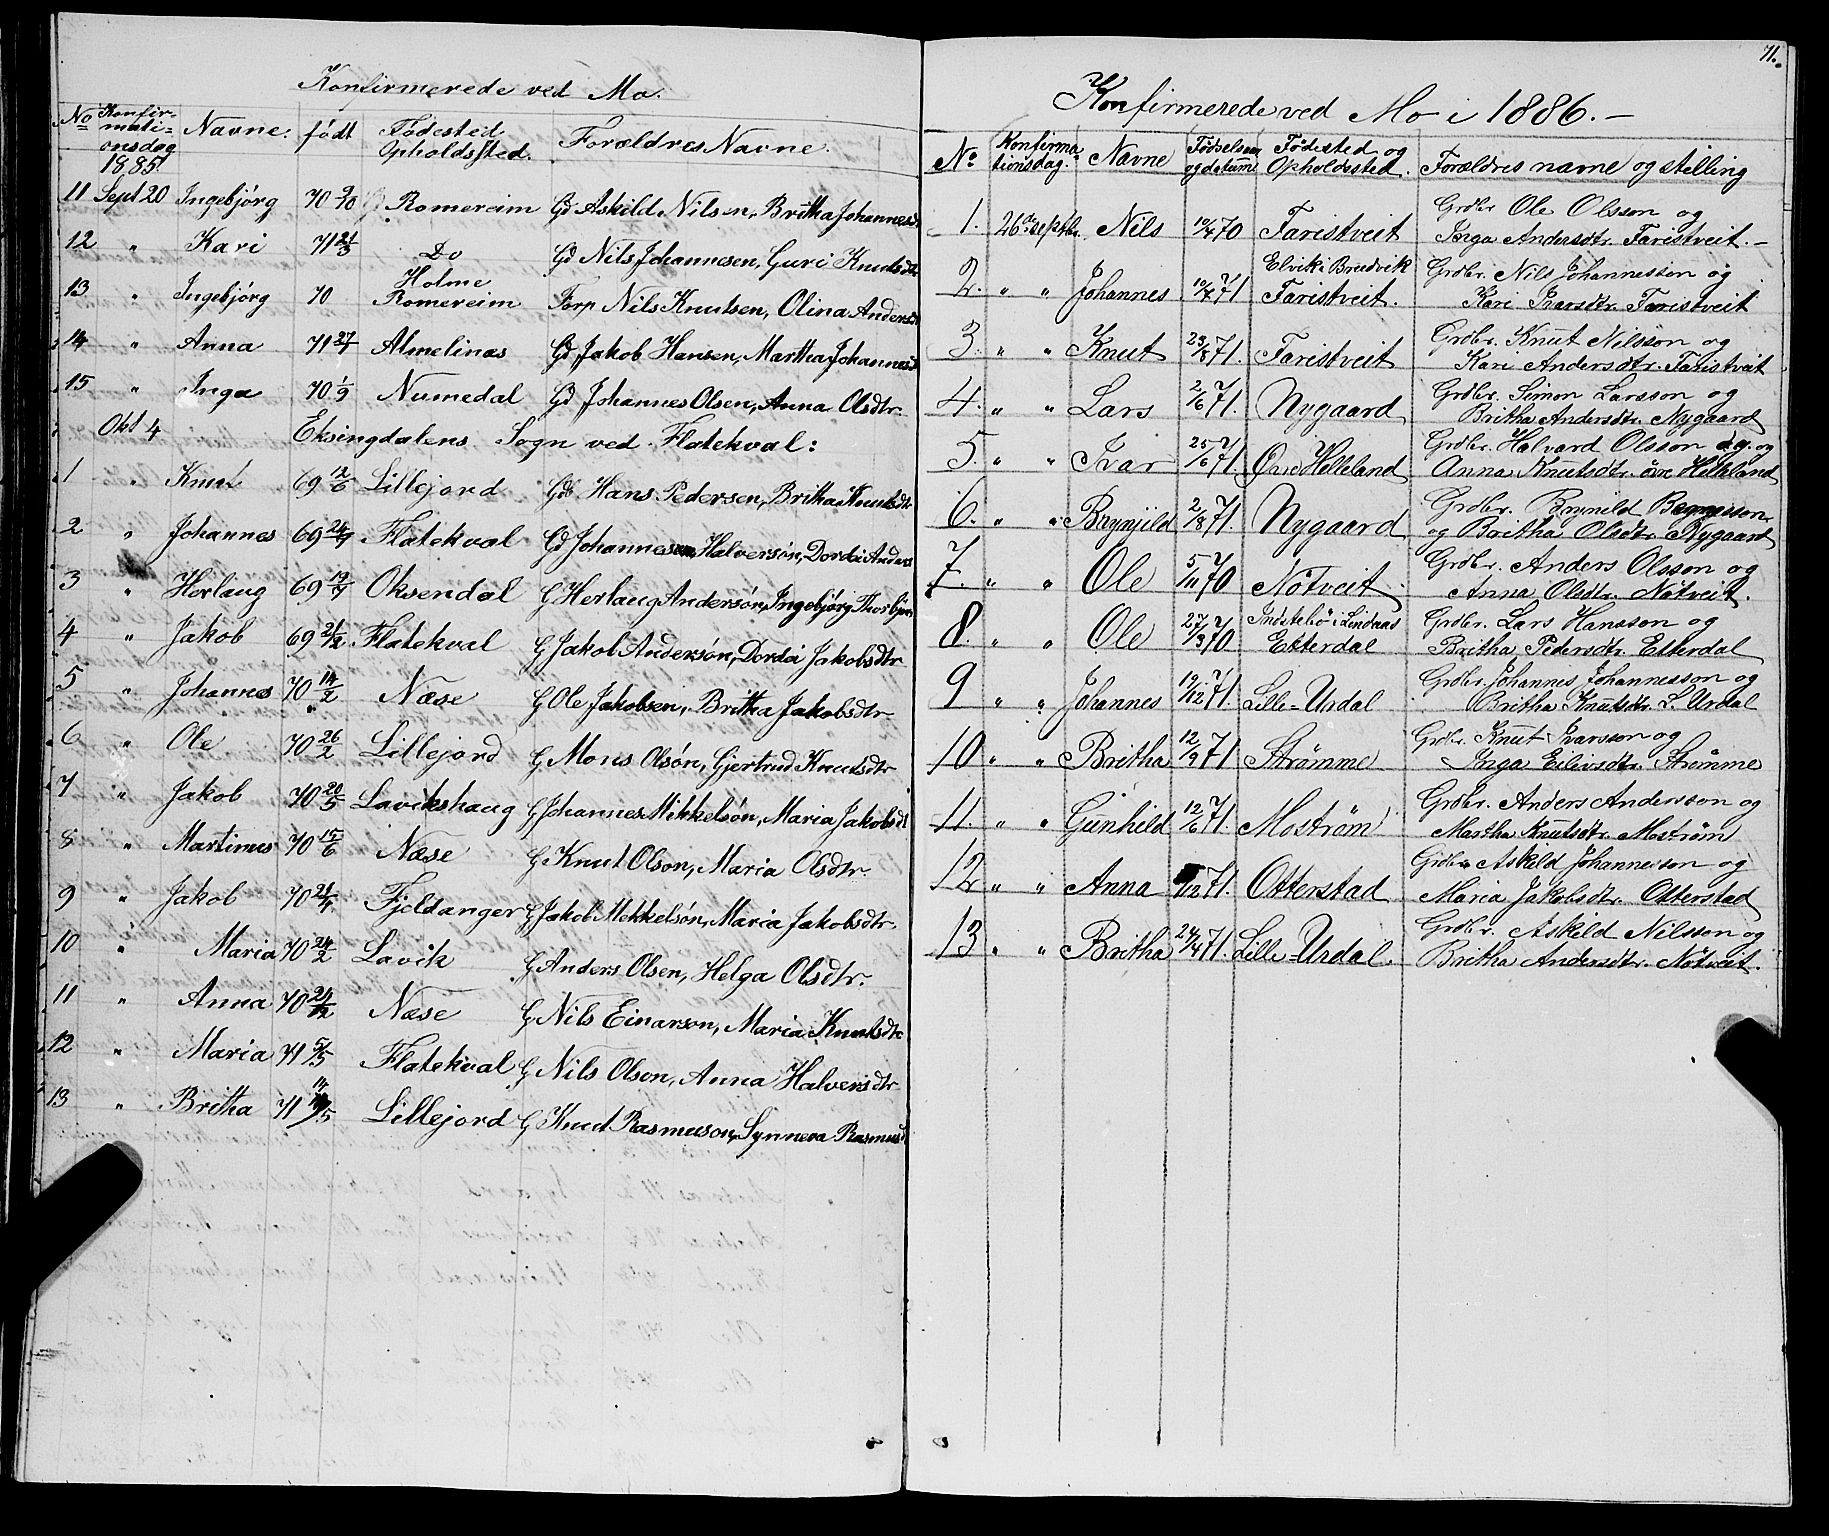 Konfirmerede ved Mo.
No Konfirmationsdag 1885. Navne. født Fødested Opholdssted. Forældres Navne.
11 Sept 20 Ingebjørg 70 Romereim Gd Askild Nilsen, Britha Johannesdt
12 " Kari 71 21/3 Do Gd Nils Johannesen, Guri Knutsdtr
13 " Ingebjørg 70 Holme Romereim Torp Nils Knutsen, Olina Andersdt
14 " Anna 71 Almelinas Gd Jakob Hansen, Martha Johannesdt
15 " Inga 70 1/9 Numedal Gd Johannes Olsen, Anna Olsdtr.
Okt 4 Eksingdalens Sogn ved Flatekval:
1 " Knut 69 12/6 Lillejord Gdb Hans Pedersen, Britha Knutsdtr
2 " Johannes 69 Flatekval Gd Johannes Halversøn, Dordei Anders
3 " Herlaug 69 Oksendal G Herlaug Andersøn, Ingebjørg Thorbjørns
4 " Jakob 69 Flatekval G Jakob Andersøn, Dordei Jakobsdtr
5 " Johannes 70 14/2 Næse G Ole Jakobsen, Britha Jakobsdtr
6 " Ole 70 26/2 Lillejord G Mons Olsøn, Gjertrud Knutsdtr
7 " Jakob 70 20/5 Lavikshaug G Johannes Mikkelsøn, Maria Jakobsdt
8 " Martinus 70 15/6 Næse G Knut Olson, Maria Olsdtr.
9 " Jakob 70 Fjeldanger G Jakob Mekkelsøn, Maria Jakobsdtr.
10 " Maria 70 24/2 Lavik G Anders Olsen, Helga Olsdtr.
11 " Anna 70 Næse G Nils Einarson, Maria Knutsdtr
12 " Maria 71 5/5 Flatekval G Nils Olson, Anna Halversdtr
13 " Britha 71 Lillejord G Knud Rasmuson, Synneva Rasmusd
71.
Konfirmerede ved Mo i 1886.-
No Konfirmationsdag. Navne Fødselsaar og datum Fødested og Opholdssted. Forældres navne og stilling
1. 26de septbr. Nils 10/4 70 Faristveit Grdbr Ole Olsson og
Inga Andersdtr. Faristveit.-
2. " " Johannes 10/4 71 Elvik i Bredvik Faristveit. Grdbr. Nils Johannesson og
Kari Ivarsdtr. Faristveit
3. " " Knut 23/8 71. Faristveit Grdbr. Knut Nilsson og
Kari Andersdtr. Faristveit
4. " " Lars 2/6 71. Nygaard Grdbr. Simon Larsson og
Britha Andersdtr. Nygaard
5. " " Ivar 25/6 71. Øvre Helleland Grdbr. Halvard Olsson og
Anna Knutsdtr. øvre Helleland
6. " " Brynjild 2/8 71. Nygaard Grdbr. Brynild
og Britha Olsdtr. Nygaard
7. " " Ole 5/11 70 Nøtveit Grdbr. Anders Olsson og
Anna Olsdtr. Nøtveit.
8. " " Ole 27/8 70. Indstebø i Lindaas Etterdal Grdbr. Lars Hansson og
Britha Pedersdtr. Etterdal
9 " " Johannes 19/12 71. Lille-Urdal Grdbr. Johannes Johannesson og
Britha Knutsdtr. L. Urdal
10 " " Britha 12/9 71. Strømme Grdbr. Knut Ivarsson og
Inga Eilivsdtr. Strømme
11. " " Gunhild 12/6 71. Mostrøm Grdbr. Anders Andersson og
Martha Knutsdtr. Mostrøm
12 " " Anna 71. Otterstad Grdbr Askild Johannesson og
Maria Jakobsdtr. Otterstad
13 " " Britha 24/4 71. Lille-Urdal. Grdbr. Askild Nilsson og
Britha Andersdtr. Nøtveit.